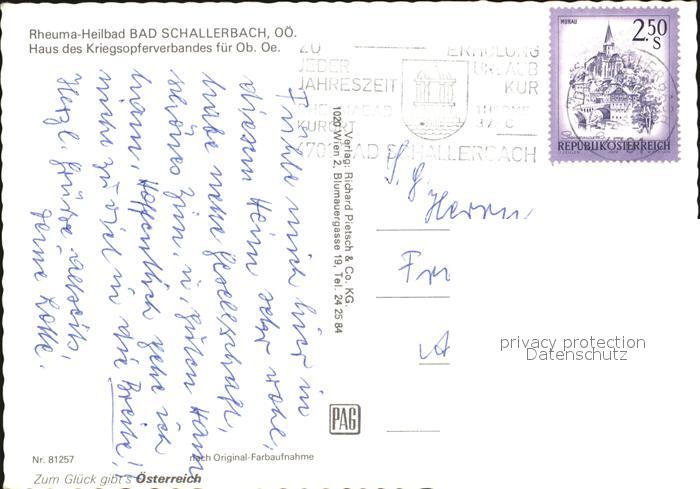 Rheuma-Heilbad BAD SCHALLERBACH, OÖ.
Haus des Kriegsopferverbandes für Ob. Oe.
ZU JEDER JAHRESZEIT
ERHOLUNG URLAUB KUR
KURORT
THERME 37°C
4701 BAD SCHALLERBACH
MURAU
2.50
S
REPUBLIK ÖSTERREICH
Fühle mich hier in
diesem Heim sehr wohl,
habe nette Gesellschaft,
schönes Zimm. u. guten Haus
mann. Hoffentlich gehe ich
nicht zu viel in die Breite!
Herzl. Grüße allseits,
Deine Lotte.
Verlag: Richard Pietsch & Co. KG.
1020 Wien 2, Blumauergasse 19, Tel. 24 25 84
S. g.
Herrn
privacy protection
Datenschutz
PAG
Nr. 81257
nach Original-Farbaufnahme
Zum Glück gibt's Österreich